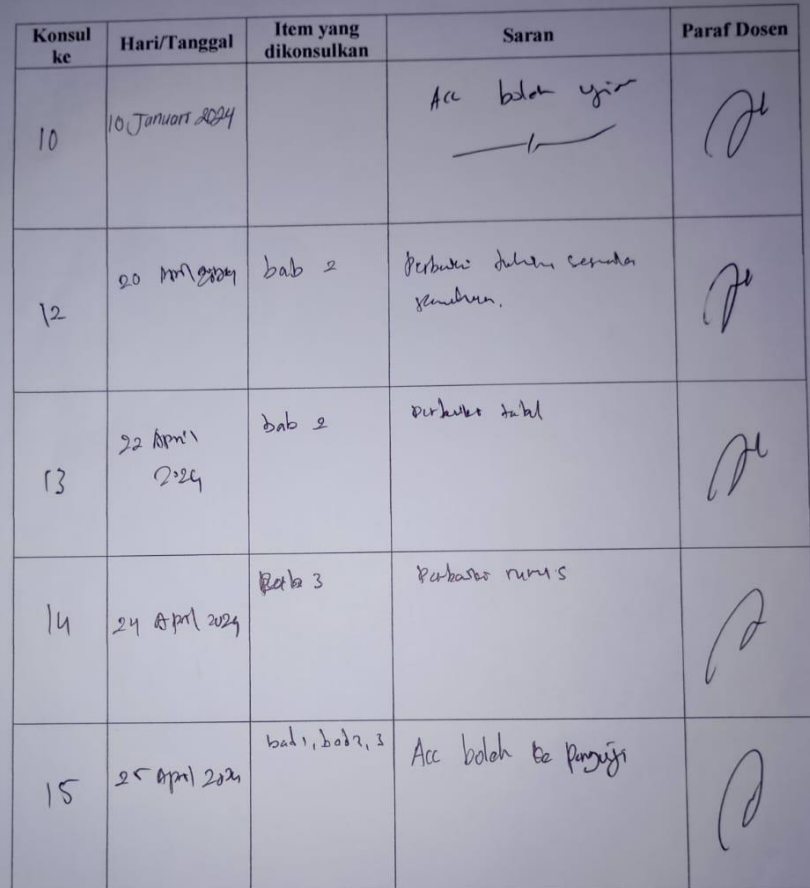 Konsul ke
Hari/Tanggal
Item yang dikonsulkan
Saran
Paraf Dosen
10
10 Januari 2024
Acc boleh ujian
12
20 April 2024
bab 2
Perbaiki
13
22 April
2024
bab 2
Perbaiki tabel
14
24 April 2024
Bab 3
Perbaiki rumus
15
25 April 2024
bab 1, bab 2, 3
Acc boleh ke penguji